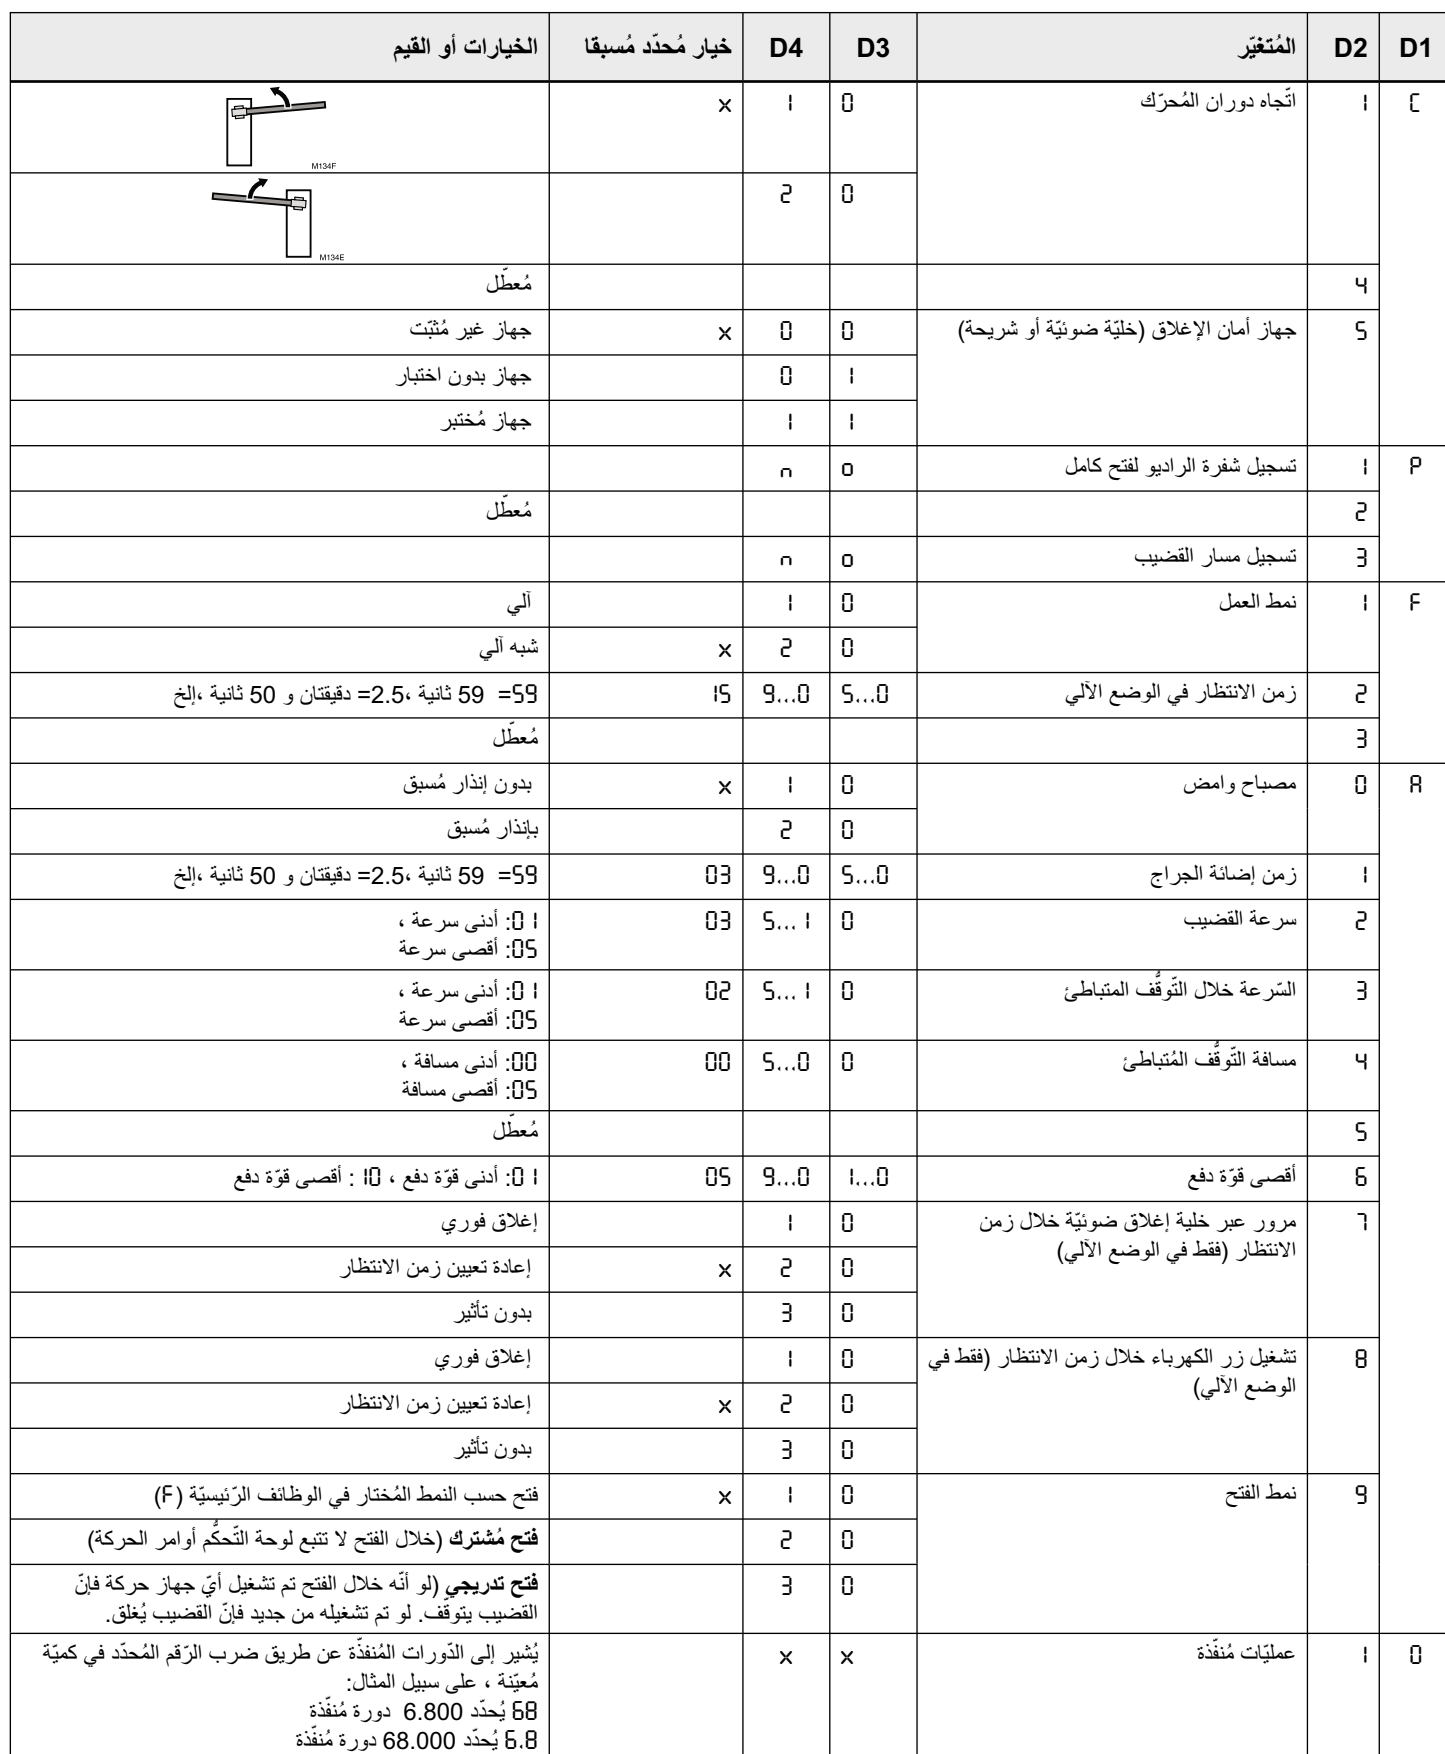 D1 D2 المُتغيّر D3 D4 خيار مُحدّد مُسبقا الخيارات أو القيم
C 1 اتّجاه دوران المُحرّك 0 1 x
M134F
0 2
M134E
4 مُعطّل
5 جهاز أمان الإغلاق (خليّة ضوئيّة أو شريحة) 0 0 x جهاز غير مُثبّت
1 0 جهاز بدون اختبار
1 1 جهاز مُختبر
P 1 تسجيل شفرة الراديو لفتح كامل o n
2 مُعطّل
3 تسجيل مسار القضيب o n
F 1 نمط العمل 0 1 آلي
0 2 x شبه آلي
2 زمن الانتظار في الوضع الآلي 0...5 0...9 15 59= 59 ثانية ،2.5= دقيقتان و 50 ثانية ،إلخ
3 مُعطّل
A 0 مصباح وامض 0 1 x بدون إنذار مُسبق
0 2 بإنذار مُسبق
1 زمن إضائة الجراج 0...5 0...9 03 59= 59 ثانية ،2.5= دقيقتان و 50 ثانية ،إلخ
2 سرعة القضيب 0 1...5 03 01: أدنى سرعة ،
05: أقصى سرعة
3 السّرعة خلال التّوقُّف المتباطئ 0 1...5 02 01: أدنى سرعة ،
05: أقصى سرعة
4 مسافة التّوقُّف المُتباطئ 0 0...5 00 00: أدنى مسافة ،
05: أقصى مسافة
5 مُعطّل
6 أقصى قوّة دفع 0...1 0...9 05 01: أدنى قوّة دفع ، 10 : أقصى قوّة دفع
7 مرور عبر خلية إغلاق ضوئيّة خلال زمن 0 1 إغلاق فوري
الانتظار (فقط في الوضع الآلي) 0 2 x إعادة تعيين زمن الانتظار
0 3 بدون تأثير
8 تشغيل زر الكهرباء خلال زمن الانتظار (فقط في 0 1 إغلاق فوري
الوضع الآلي) 0 2 x إعادة تعيين زمن الانتظار
0 3 بدون تأثير
9 نمط الفتح 0 1 x فتح حسب النمط المُختار في الوظائف الرّئيسيّة (F)
0 2 فتح مُشترك (خلال الفتح لا تتبع لوحة التّحكُّم أوامر الحركة)
0 3 فتح تدريجي (لو أنّه خلال الفتح تم تشغيل أيّ جهاز حركة فإنّ
القضيب يتوقّف. لو تم تشغيله من جديد فإنّ القضيب يُغلق.
0 1 عمليّات مُنفّذة x x يُشير إلى الدّورات المُنفذّة عن طريق ضرب الرّقم المُحدّد في كميّة
مُعيّنة ، على سبيل المثال:
68 يُحدّد 6.800 دورة مُنفّذة
6.8 يُحدّد 68.000 دورة مُنفّذة